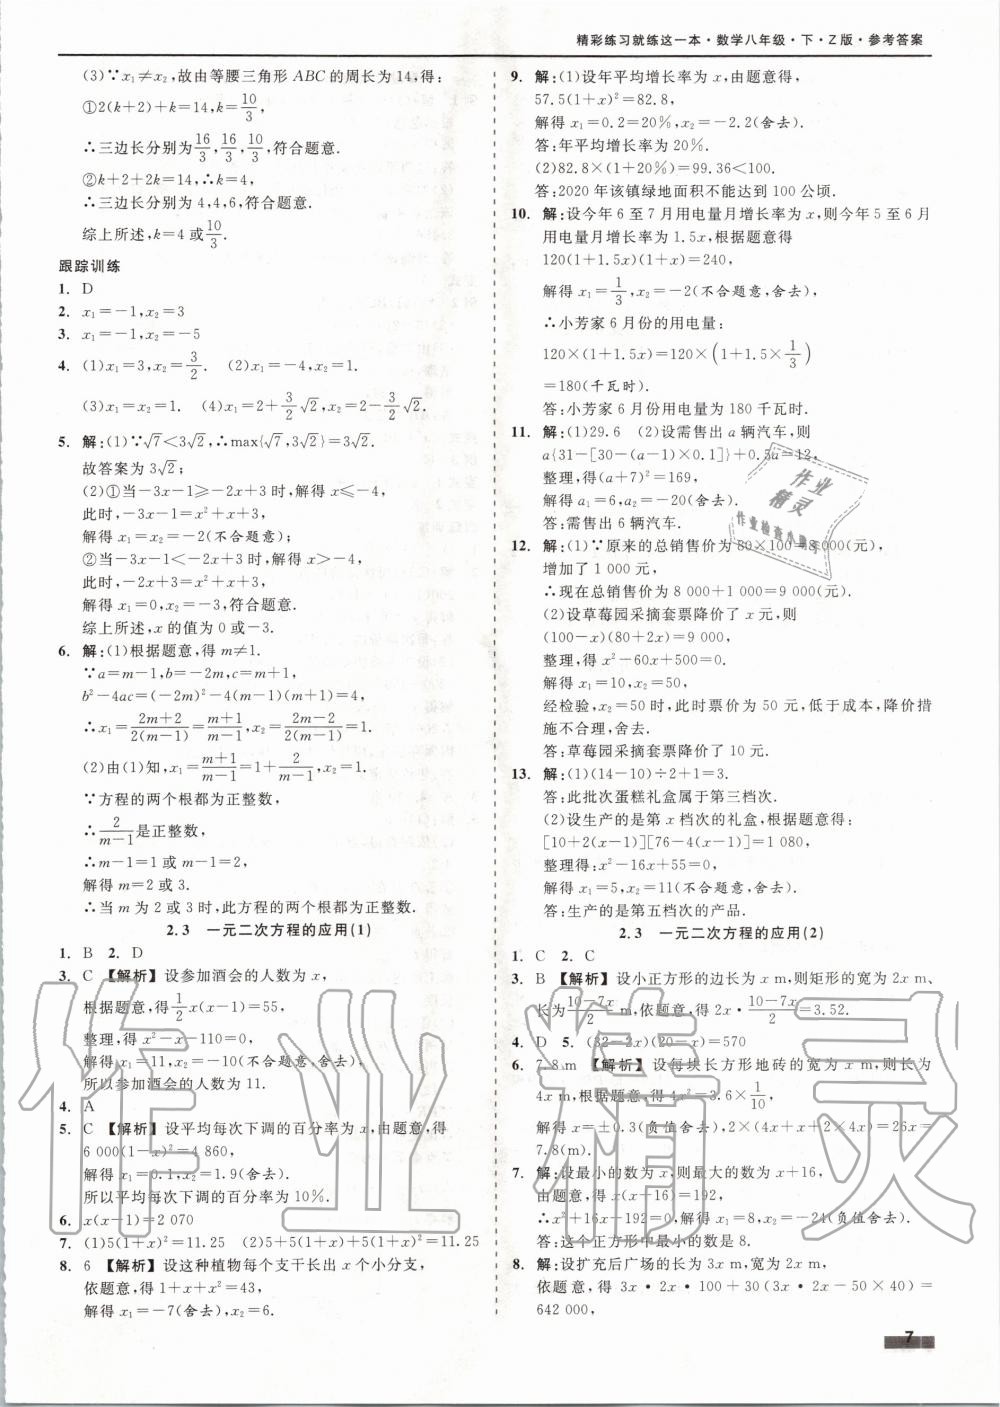 精彩练习就练这一本·数学八年级·下·Z版·参考答案
(3)∵x₁≠x₂,故由等腰三角形ABC的周长为14,得:
①2(k+2)+k=14,k=10/3,
∴三边长分别为16/3,16/3,10/3,符合题意.
②k+2+2k=14,∴k=4,
∴三边长分别为4,4,6,符合题意.
综上所述,k=4或10/3.
跟踪训练
1. D
2. x₁=-1,x₂=3
3. x₁=-1,x₂=-5
4. (1)x₁=3,x₂=3/2. (2)x₁=-4,x₂=1.
(3)x₁=x₂=1. (4)x₁=2+3/2√2,x₂=2-3/2√2.
5. 解:(1)∵√7<3√2,∴max{√7,3√2}=3√2.
故答案为3√2;
(2)①当-3x-1≥-2x+3时,解得x≤-4,
此时,-3x-1=x²+x+3,
解得x₁=x₂=-2(不合题意,舍去);
②当-3x-1<-2x+3时,解得x>-4,
此时,-2x+3=x²+x+3,
解得x₁=0,x₂=-3,符合题意.
综上所述,x的值为0或-3.
6. 解:(1)根据题意,得m≠1.
∵a=m-1,b=-2m,c=m+1,
b²-4ac=(-2m)²-4(m-1)(m+1)=4,
∴x₁=2m+2/2(m-1)=m+1/m-1,x₂=2m-2/2(m-1)=1.
(2)由(1)知,x₁=m+1/m-1=1+2/m-1,x₂=1.
∵方程的两个根都为正整数,
∴2/m-1是正整数,
∴m-1=1或m-1=2,
解得m=2或3.
∴当m为2或3时,此方程的两个根都为正整数.
2.3 一元二次方程的应用(1)
1. B 2. D
3. C 【解析】设参加酒会的人数为x,
根据题意,得1/2x(x-1)=55,
整理,得x²-x-110=0,
解得x₁=11,x₂=-10(不合题意,舍去),
所以参加酒会的人数为11.
4. A
5. C 【解析】设平均每次下调的百分率为x,由题意,得
6 000(1-x)²=4 860,
解得x₁=0.1,x₂=1.9(舍去).
所以平均每次下调的百分率为10%.
6. x(x-1)=2 070
7. (1)5(1+x)²=11.25 (2)5+5(1+x)+5(1+x)²=11.25
8. 6 【解析】设这种植物每个支干长出x个小分支,
依题意,得1+x+x²=43,
解得x₁=-7(舍去),x₂=6.
9. 解:(1)设年平均增长率为x,由题意,得
57.5(1+x)²=82.8,
解得x₁=0.2=20%,x₂=-2.2(舍去).
答:年平均增长率为20%.
(2)82.8×(1+20%)=99.36<100.
答:2020年该镇绿地面积不能达到100公顷.
10. 解:设今年6至7月用电量月增长率为x,则今年5至6月
用电量月增长率为1.5x,根据题意得
120(1+1.5x)(1+x)=240,
解得x₁=1/3,x₂=-2(不合题意,舍去),
∴小芳家6月份的用电量:
120×(1+1.5x)=120×(1+1.5×1/3)
=180(千瓦时).
答:小芳家6月份用电量为180千瓦时.
11. 解:(1)29.6 (2)设需售出a辆汽车,则
a{31-[30-(a-1)×0.1]}+0.5a=12,
整理,得(a+7)²=169,
解得a₁=6,a₂=-20(舍去).
答:需售出6辆汽车.
12. 解:(1)∵原来的总销售价为80×100=8 000(元),
增加了1 000元,
∴现在总销售价为8 000+1 000=9 000(元).
(2)设草莓园采摘套票降价了x元,则
(100-x)(80+2x)=9 000,
整理,得x²-60x+500=0.
解得x₁=10,x₂=50,
经检验,x₂=50时,此时票价为50元,低于成本,降价措
施不合理,舍去.
答:草莓园采摘套票降价了10元.
13. 解:(1)(14-10)÷2+1=3.
答:此批次蛋糕礼盒属于第三档次.
(2)设生产的是第x档次的礼盒,根据题意得:
[10+2(x-1)][76-4(x-1)]=1 080,
整理得:x²-16x+55=0,
解得x₁=5,x₂=11(不合题意,舍去).
答:生产的是第五档次的产品.
2.3 一元二次方程的应用(2)
1. C 2. C
3. B 【解析】设小正方形的边长为x m,则矩形的宽为2x m,
长为10-7x/2 m,依题意,得2x·10-7x/2=3.52.
4. D 5. (32-2x)(20-x)=570
6. 7.8 m 【解析】设每块长方形地砖的宽为x m,则长为
4x m,根据题意,得4x²=3.6×1/10,
解得x=±0.3(负值舍去),2×(4x+x+2x+4x+2x)=26x=
7.8(m).
7. 解:设最小的数为x,则最大的数为x+16,
由题意,得x(x+16)=192,
∴x²+16x-192=0,解得x₁=8,x₂=-24(负值舍去).
答:这个正方形中最小的数是8.
8. 解:设扩充后广场的长为3x m,宽为2x m,
依题意,得3x·2x·100+30(3x·2x-50×40)=
642 000,
7
作业
精灵
作业检查小助手
作业精灵